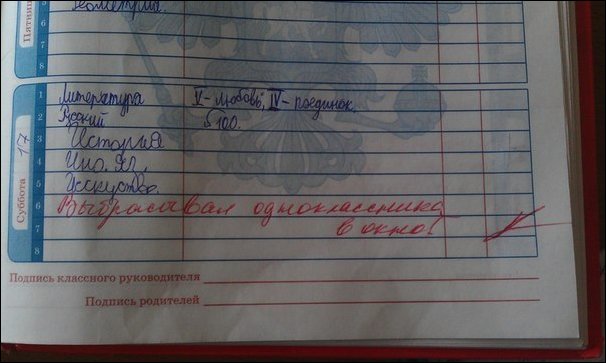 Пятниц
5 Геометрия
6
7
8
Суббота 17
1 Литература V-любовь, IV-поединок.
2 Русский §100.
3 История
4 Ино. Яз.
5 Искуство.
6 Выбрасывал одноклассника
7 в окно!
8
Подпись классного руководителя
Подпись родителей